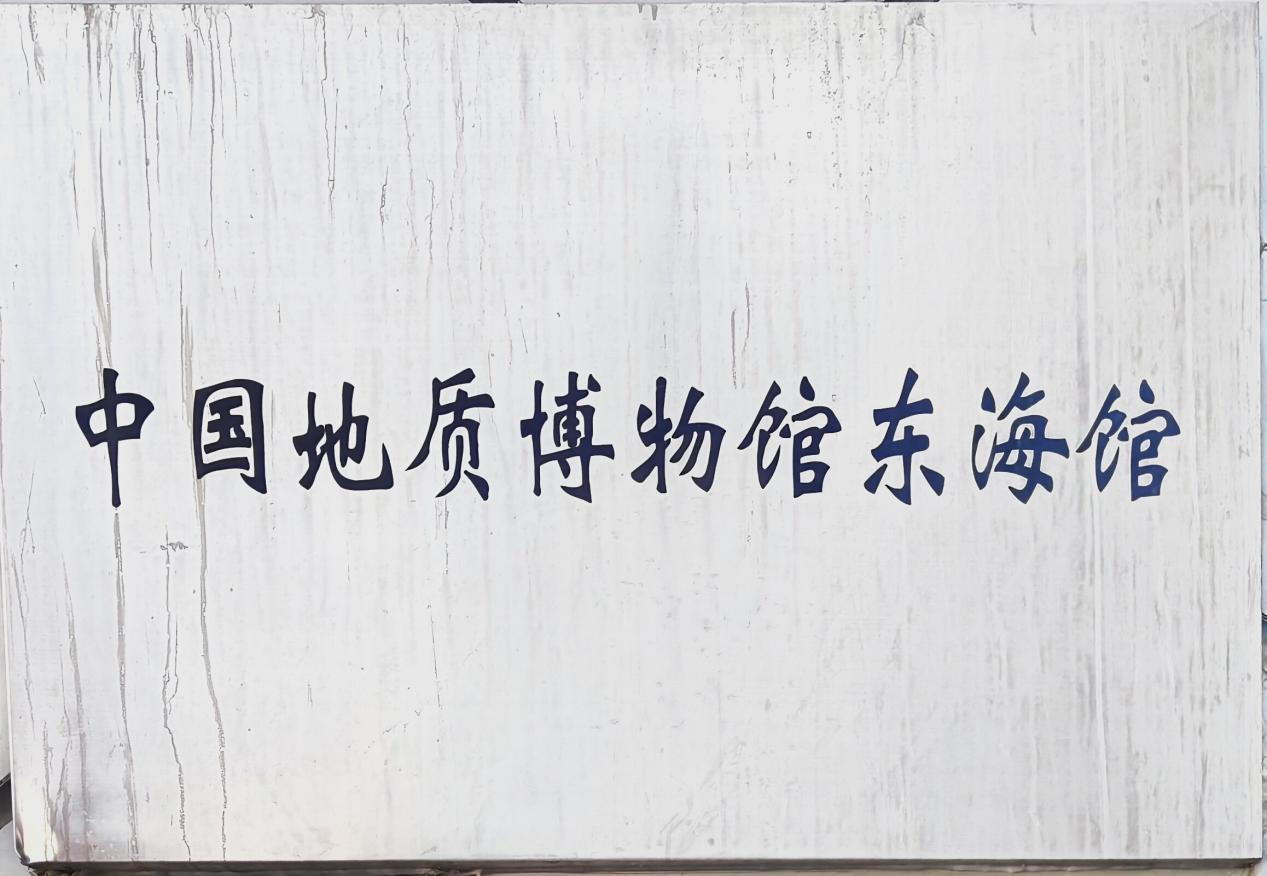 中国地质博物馆东海馆